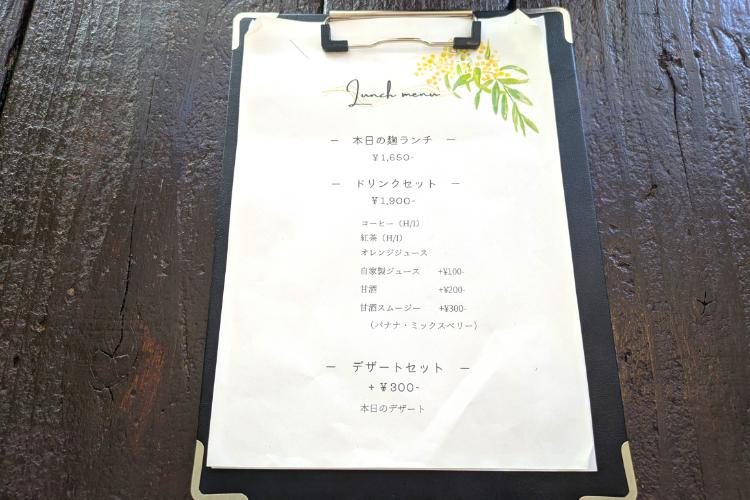 Lunch menu
― 本日の麹ランチ ―
¥1,650-
― ドリンクセット ―
¥1,900-
コーヒー（H/I）
紅茶（H/I）
オレンジジュース
自家製ジュース +¥100-
甘酒 +¥200-
甘酒スムージー +¥300-
（バナナ・ミックスベリー）
― デザートセット ―
+ ¥300-
本日のデザート